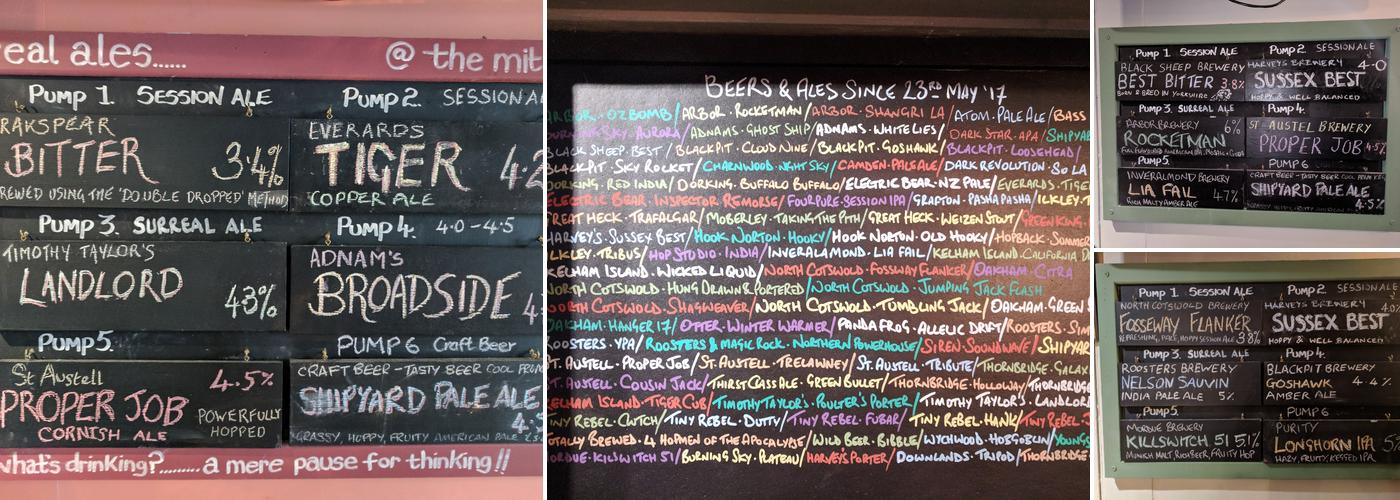 real ales......
@ the mit
Pump 1. SESSION ALE
BRAKSPEAR
BITTER 3.4%
BREWED USING THE 'DOUBLE DROPPED' METHOD
Pump 2. SESSION A
EVERARDS
TIGER 4.2
COPPER ALE
Pump 3. SURREAL ALE
TIMOTHY TAYLOR'S
LANDLORD
4.3%
Pump 4. 4.0-4.5
ADNAM'S
BROADSIDE 4.
Pump 5.
St Austell 4.5%
PROPER JOB POWERFULLY HOPPED
CORNISH ALE
PUMP 6 Craft Beer
CRAFT BEER - TASTY BEER COOL FROM
SHIPYARD PALE ALE
GRASSY, HOPPY, FRUITY AMERICAN PALE
what's drinking?.........a mere pause for thinking!!
BEERS & ALES SINCE 23RD MAY '17
ARBOR. OZBOMB/ARBOR. ROCKETMAN/ARBOR. SHANGRI LA/ATOM. PALE ALE/BASS
BURNING SKY. AURORA/ADNAMS. GHOST SHIP/ADNAMS. WHITE LIES/DARK STAR. APA/SHIPYAR
BLACK SHEEP. BEST/BLACKPIT. CLOUD NINE/BLACKPIT. GOSHAWK/BLACKPIT. LOOSEHEAD/
BLACKPIT. SKY ROCKET/CHARNWOOD. NIGHT SKY/CAMDEN. PALE ALE/DARK REVOLUTION. SO LA
DORKING. RED INDIA/DORKING. BUFFALO BUFFALO/ELECTRIC BEAR. NZ PALE/EVERARDS. TIGE
ELECTRIC BEAR. INSPECTOR REMORSE/FOURPURE. SESSION IPA/GRAFTON. PASHA PASHA/ILKLEY. T
GREAT HECK. TRAFALGAR/MOBERLEY. TAKING THE PITH/GREAT HECK. WEIZEN STOUT/GREEN KING.
HARVEY'S. SUSSEX BEST/HOOK NORTON. HOOKY/HOOK NORTON. OLD HOOKY/HOPBACK. SUMMER
ILKLEY. TRIBUS/HOP STUDIO. INDIA/INVERALAMOND. LIA FAIL/KELHAM ISLAND. CALIFORNIA D
KELHAM ISLAND. WICKED LIQUID/NORTH COTSWOLD. FOSSWAY FLANKER/OAKHAM. CITRA
NORTH COTSWOLD. HUNG DRAWN & PORTERED/NORTH COTSWOLD. JUMPING JACK FLASH
NORTH COTSWOLD. SHAGWEAVER/NORTH COTSWOLD. TUMBLING JACK/OAKHAM. GREEN
OAKHAM. HANGER 17/OTTER. WINTER WARMER/PANDA FROG. ALLELIC DRIFT/ROOSTERS. SIM
ROOSTERS. YPA/ROOSTERS & MAGIC ROCK. NORTHERN POWERHOUSE/SIREN. SOUNDWAVE/SHIPYAR
ST. AUSTELL. PROPER JOB/ST. AUSTELL. TRELAWNEY/ST. AUSTELL. TRIBUTE/THORNBRIDGE. GALAX
ST. AUSTELL. COUSIN JACK/THIRST CLASS ALE. GREEN BULLET/THORNBRIDGE. HOLLOWAY/THORNBRIDG
KELHAM ISLAND. TIGER CUB/TIMOTHY TAYLOR'S. POULTER'S PORTER/TIMOTHY TAYLOR'S. LANDLOR
TINY REBEL. CWTCH/TINY REBEL. DUTTY/TINY REBEL. FUBAR/TINY REBEL. HANK/TINY REBEL.
TOTALLY BREWED. 4 HOPMEN OF THE APOCALYPSE/WILD BEER. BIBBLE/WYCHWOOD. HOBGOBLIN/YOUNGS
MORDUE. KILLSWITCH 51/BURNING SKY. PLATEAU/HARVEYS PORTER/DOWNLANDS. TRIPOD/THORNBRIDGE
Pump 1. SESSION ALE
BLACK SHEEP BREWERY
BEST BITTER 3.8%
BORN & BRED IN YORKSHIRE
Pump 2. SESSION ALE
HARVEYS BREWERY 4.0
SUSSEX BEST
HOPPY & WELL BALANCED
Pump 3. SURREAL ALE
ARBOR BREWERY 6%
ROCKETMAN
Pump 4.
ST AUSTEL BREWERY
PROPER JOB 4.5%
Pump 5.
INVERALMOND BREWERY
LIA FAIL 4.7%
RICH MALTY AMBER ALE
PUMP 6
CRAFT BEER - TASTY BEER COOL FROM KEG
SHIPYARD PALE ALE
4.5%
Pump 1 SESSION ALE
NORTH COTSWOLD BREWERY
FOSSEWAY FLANKER
REFRESHING, PALE, HOPPY SESSION ALE 3.8%
Pump 2. SESSION ALE
HARVEYS BREWERY
SUSSEX BEST
HOPPY & WELL BALANCED
Pump 3. SURREAL ALE
ROOSTERS BREWERY
NELSON SAUVIN
INDIA PALE ALE 5%
Pump 4.
BLACKPIT BREWERY
GOSHAWK 4.4%
AMBER ALE
Pump 5.
MORDUE BREWERY
KILLSWITCH 51 5.1%
MUNICH MALT, RICH BEER, FRUITY HOP
PUMP 6
PURITY
LONGHORN IPA 5
HAZY, FRUITY, KEGGED IPA